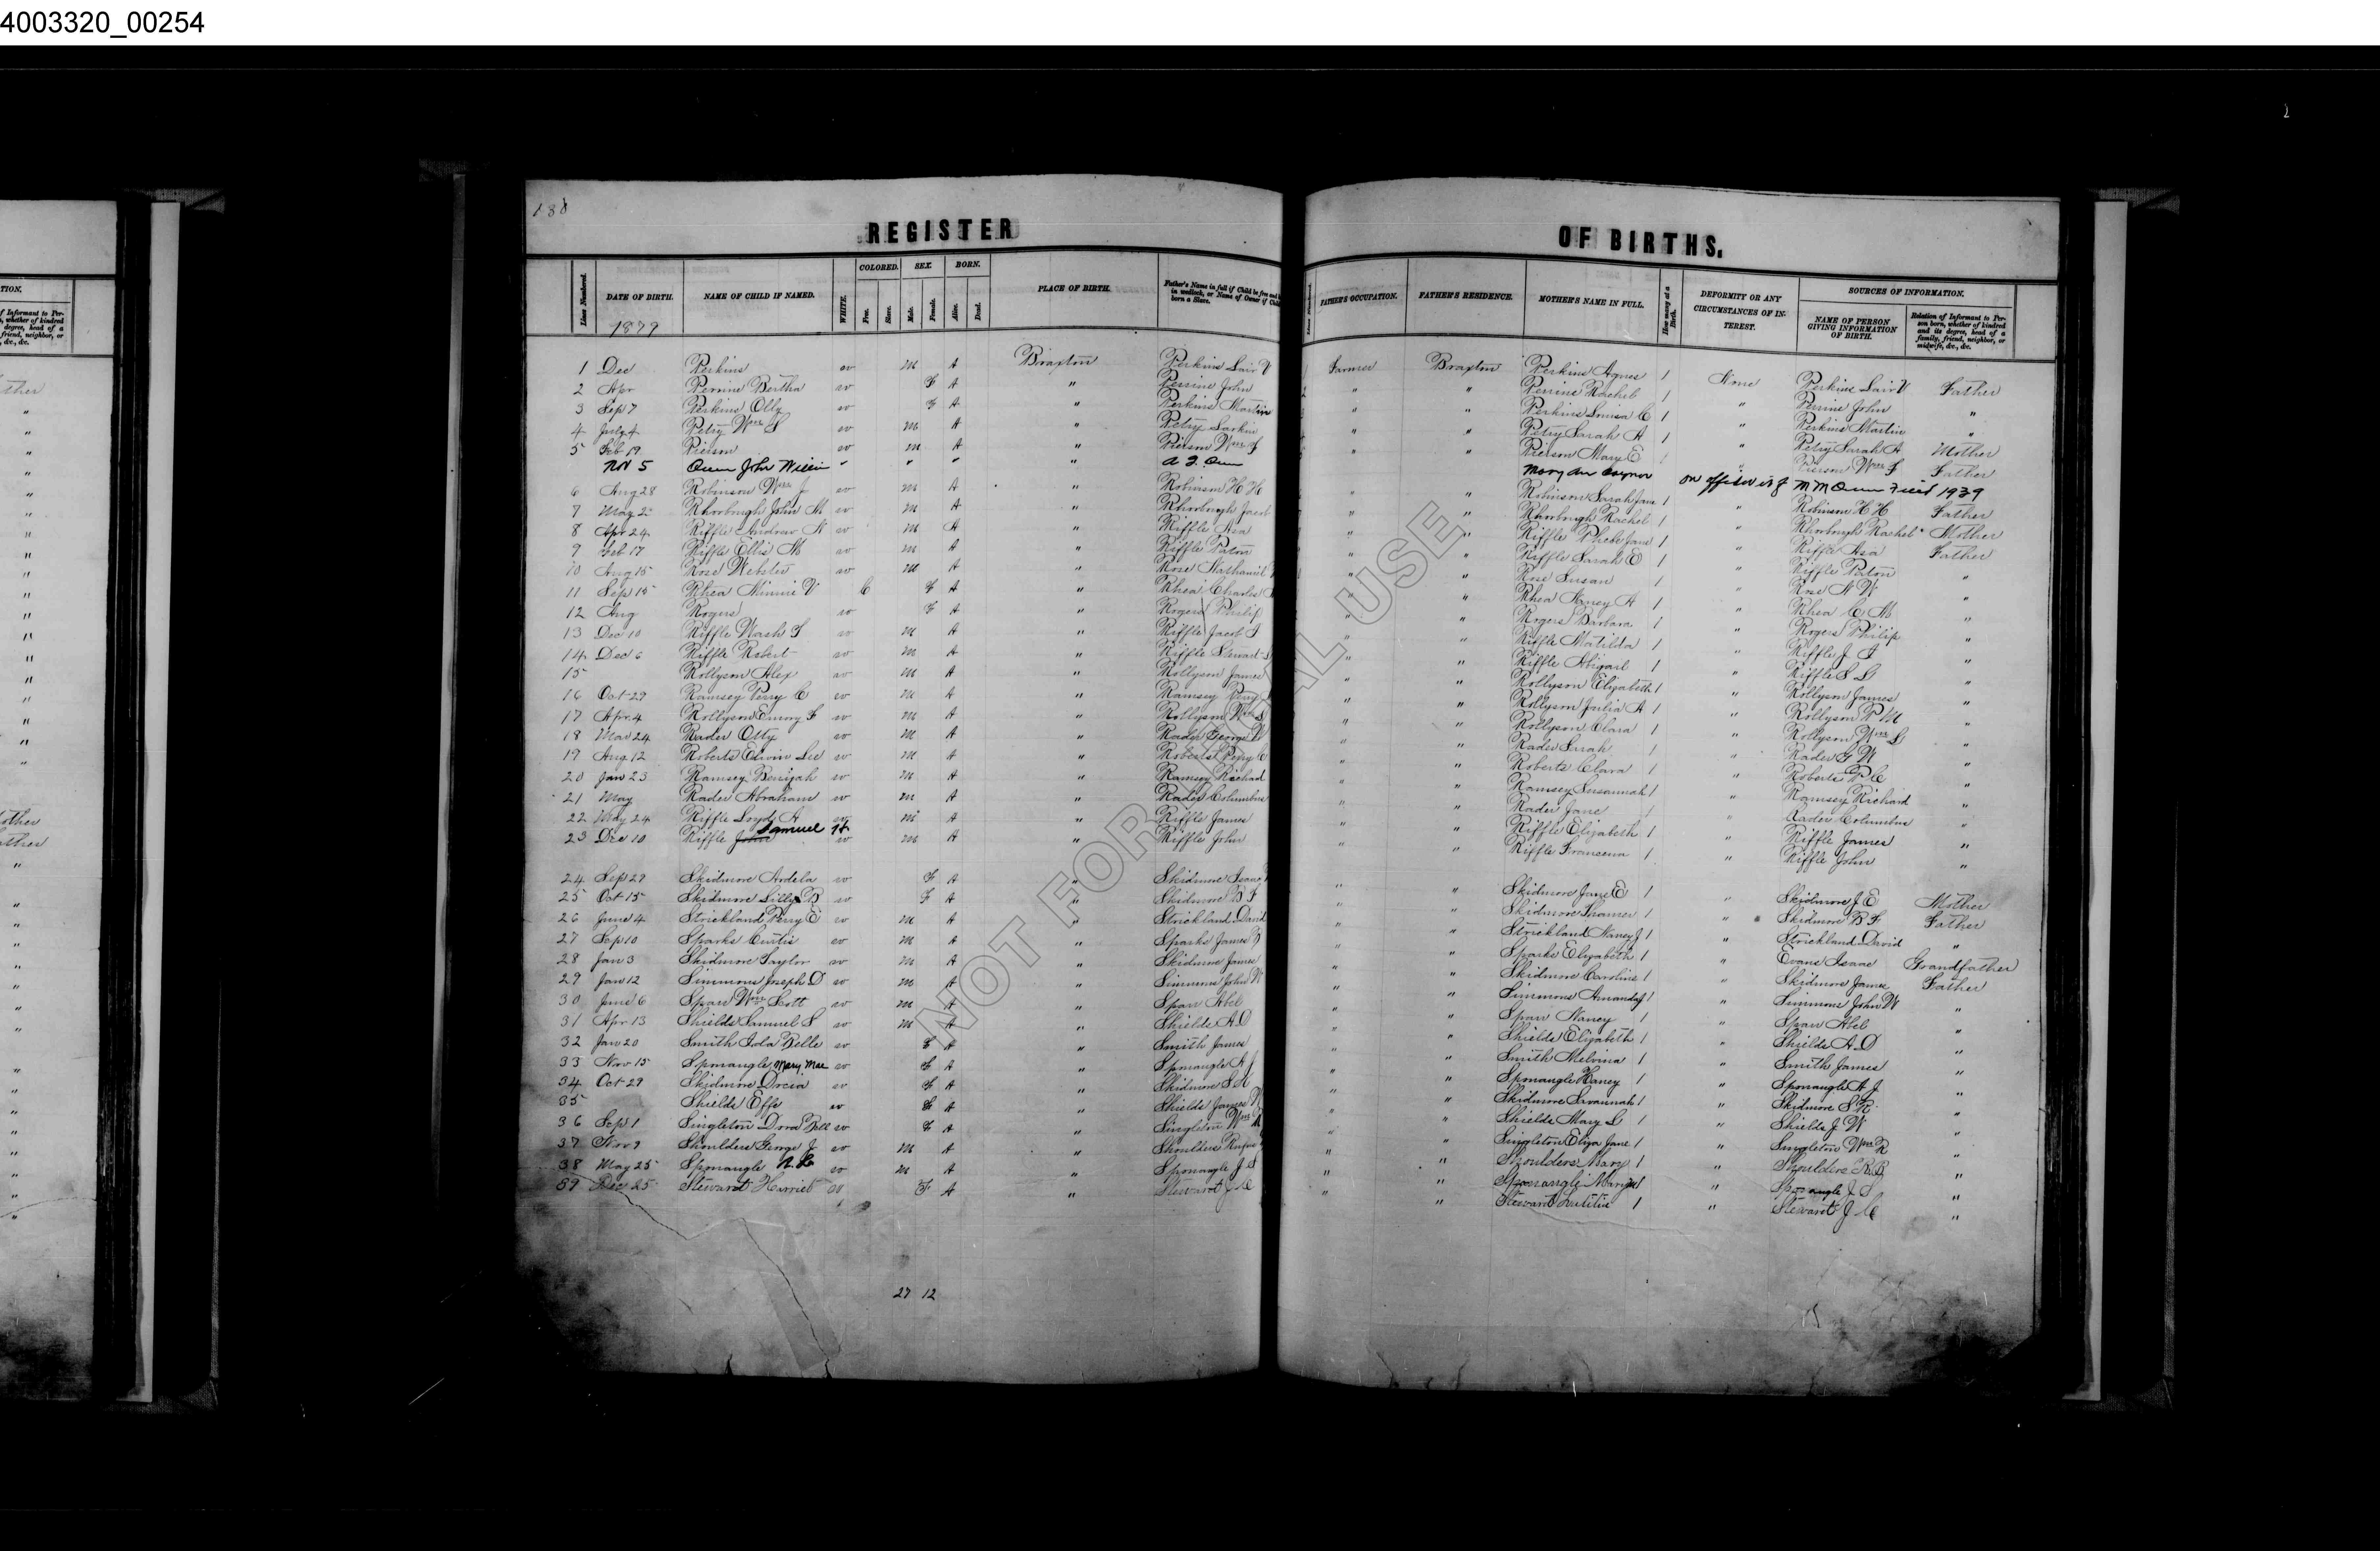 4003320_00254
TION.
f Informant to Per-
, whether of kindred
degree, head of a
friend, neighbor, or
, &c., &c.
130
REGISTER OF BIRTHS.
Lines Numbered. DATE OF BIRTH. NAME OF CHILD IF NAMED. WHITE. COLORED. Free. Slave. SEX. Male. Female. BORN. Alive. Dead. PLACE OF BIRTH. Father's Name in full if Child be free and born in wedlock, or Name of Owner if Child born a Slave. FATHER'S OCCUPATION. FATHER'S RESIDENCE. MOTHER'S NAME IN FULL. How many at a Birth. DEFORMITY OR ANY CIRCUMSTANCES OF INTEREST. SOURCES OF INFORMATION. NAME OF PERSON GIVING INFORMATION OF BIRTH. Relation of Informant to Person born, whether of kindred and its degree, head of a family, friend, neighbor, or midwife, &c., &c.
1879
1 Dec Perkins w M A Braxton Perkins Lair V Farmer Braxton Perkins Agnes 1 None Perkins Lair V Father
2 Apr Perrine Bertha w F A " Perrine John " " Perrine Rachel 1 " Perrine John "
3 Sep 7 Perkins Olly w F A " Perkins Martin " " Perkins Louisa C 1 " Perkins Martin "
4 July 4 Petry Wm S w M A " Petry Larkin " " Petry Sarah A 1 " Petry Sarah A Mother
5 Feb 19 Pierson w M A " Pierson Wm F " " Pierson Mary E 1 " Pierson Wm F Father
Nov 5 John " " " " Mary Ann 1939
6 Aug 28 Robinson Wm J w M A " Robinson H H " " Robinson Sarah Jane 1 " Robinson H H Father
7 May 2 Rhorbough John M w M A " Rhorbough Jacob " " Rhorbough Rachel 1 " Rhorbough Rachel Mother
8 Apr 24 Riffle Andrew N w M A " Riffle Asa " " Riffle Phebe Jane 1 " Riffle Asa Father
9 Feb 17 Riffle Ellis M w M A " Riffle Paton " " Riffle Sarah E 1 " Riffle Paton "
10 Aug 15 Rose Webster w M A " Rose Nathaniel " " Rose Susan 1 " Rose N W "
11 Sep 15 Rhea Minnie V C F A " Rhea Charles " " Rhea Nancy A 1 " Rhea C M "
12 Aug Rogers w F A " Rogers Philip " " Rogers Barbara 1 " Rogers Philip "
13 Dec 10 Riffle Wash F w M A " Riffle Jacob I " " Riffle Matilda 1 " Riffle J I "
14 Dec 6 Riffle Robert w M A " Riffle Stewart S " " Riffle Abigail 1 " Riffle S S "
15 Rollyson Alex w M A " Rollyson James " " Rollyson Elizabeth 1 " Rollyson James "
16 Oct 29 Ramsey Perry C w M A " Ramsey Perry " " Rollyson Julia A 1 " Rollyson P M "
17 Apr 4 Rollyson Emory F w M A " Rollyson Wm S " " Rollyson Clara 1 " Rollyson Wm S "
18 Mar 24 Rader Otty w M A " Rader George W " " Rader Sarah 1 " Rader G W "
19 Aug 12 Roberts Edwin Lee w M A " Roberts Perry C " " Roberts Clara 1 " Roberts P C "
20 Jan 23 Ramsey Benijah w M A " Ramsey Richard " " Ramsey Susannah 1 " Ramsey Richard "
21 May Rader Abraham w M A " Rader Columbus " " Rader Jane 1 " Rader Columbus "
22 May 24 Riffle Loyd A w M A " Riffle James " " Riffle Elizabeth 1 " Riffle James "
23 Dec 10 Riffle John Samuel H w M A " Riffle John " " Riffle Francena 1 " Riffle John "
24 Sep 29 Skidmore Ardela w F A " Skidmore Isaac " " Skidmore Jane E 1 " Skidmore J E Mother
25 Oct 15 Skidmore Lilly B w F A " Skidmore B F " " Skidmore 1 " Skidmore B F Father
26 June 4 Strickland Perry E w M A " Strickland David " " Strickland Nancy J 1 " Strickland David "
27 Sep 10 Sparks Curtis w M A " Sparks James B " " Sparks Elizabeth 1 " Evans Isaac Grandfather
28 Jan 3 Skidmore Taylor w M A " Skidmore James " " Skidmore Caroline 1 " Skidmore James Father
29 Jan 12 Simmons Joseph D w M A " Simmons John W " " Simmons Amanda J 1 " Simmons John W "
30 June 6 Spaur Wm Scott w M A " Spaur Abel " " Spaur Nancy 1 " Spaur Abel "
31 Apr 13 Shields Samuel S w M A " Shields A D " " Shields Elizabeth 1 " Shields A D "
32 Jan 20 Smith Ida Belle w F A " Smith James " " Smith Melvina 1 " Smith James "
33 Nov 15 Sponangle Mary Mae w F A " Sponangle A J " " Sponangle Haney 1 " Sponangle A J "
34 Oct 29 Skidmore Docia w F A " Skidmore S R " " Skidmore Savannah 1 " Skidmore S R "
35 Shields Effe w F A " Shields James W " " Shields Mary S 1 " Shields J W "
36 Sep 1 Singleton Dora Bell w F A " Singleton Wm R " " Singleton Eliza Jane 1 " Singleton Wm R "
37 Nov 9 Shoulders George J w M A " Shoulders Rufus " " Shoulders Mary 1 " Shoulders R B "
38 May 25 Sponangle w M A " Sponangle J S " " Sponangle 1 " Sponangle J S "
39 Dec 25 Stewart Harriet W F A " Stewart J C " " Stewart 1 " Stewart J C "
27 12
NOT FOR LEGAL USE